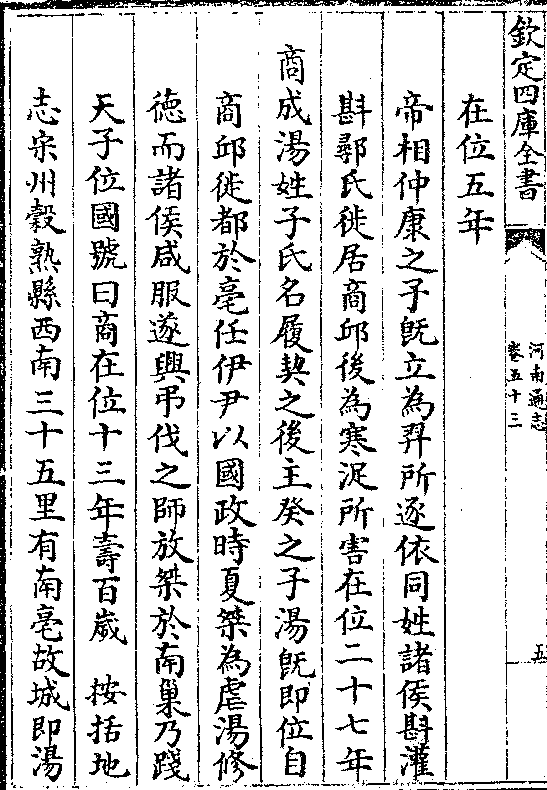 欽定四庫全書
河南通志
卷五十三
五
在位五年
帝相仲康之子既立為羿所逐依同姓諸侯斟灌
斟鄩氏徙居商邱後為寒浞所害在位二十七年
商成湯姓子氏名履契之後主癸之子湯既即位自
商邱徙都於亳任伊尹以國政時夏桀為虐湯修
徳而諸侯咸服遂興弔伐之師放桀於南巢乃踐
天子位國號曰商在位十三年壽百歲　按括地
志宋州穀熟縣西南三十五里有南亳故城即湯